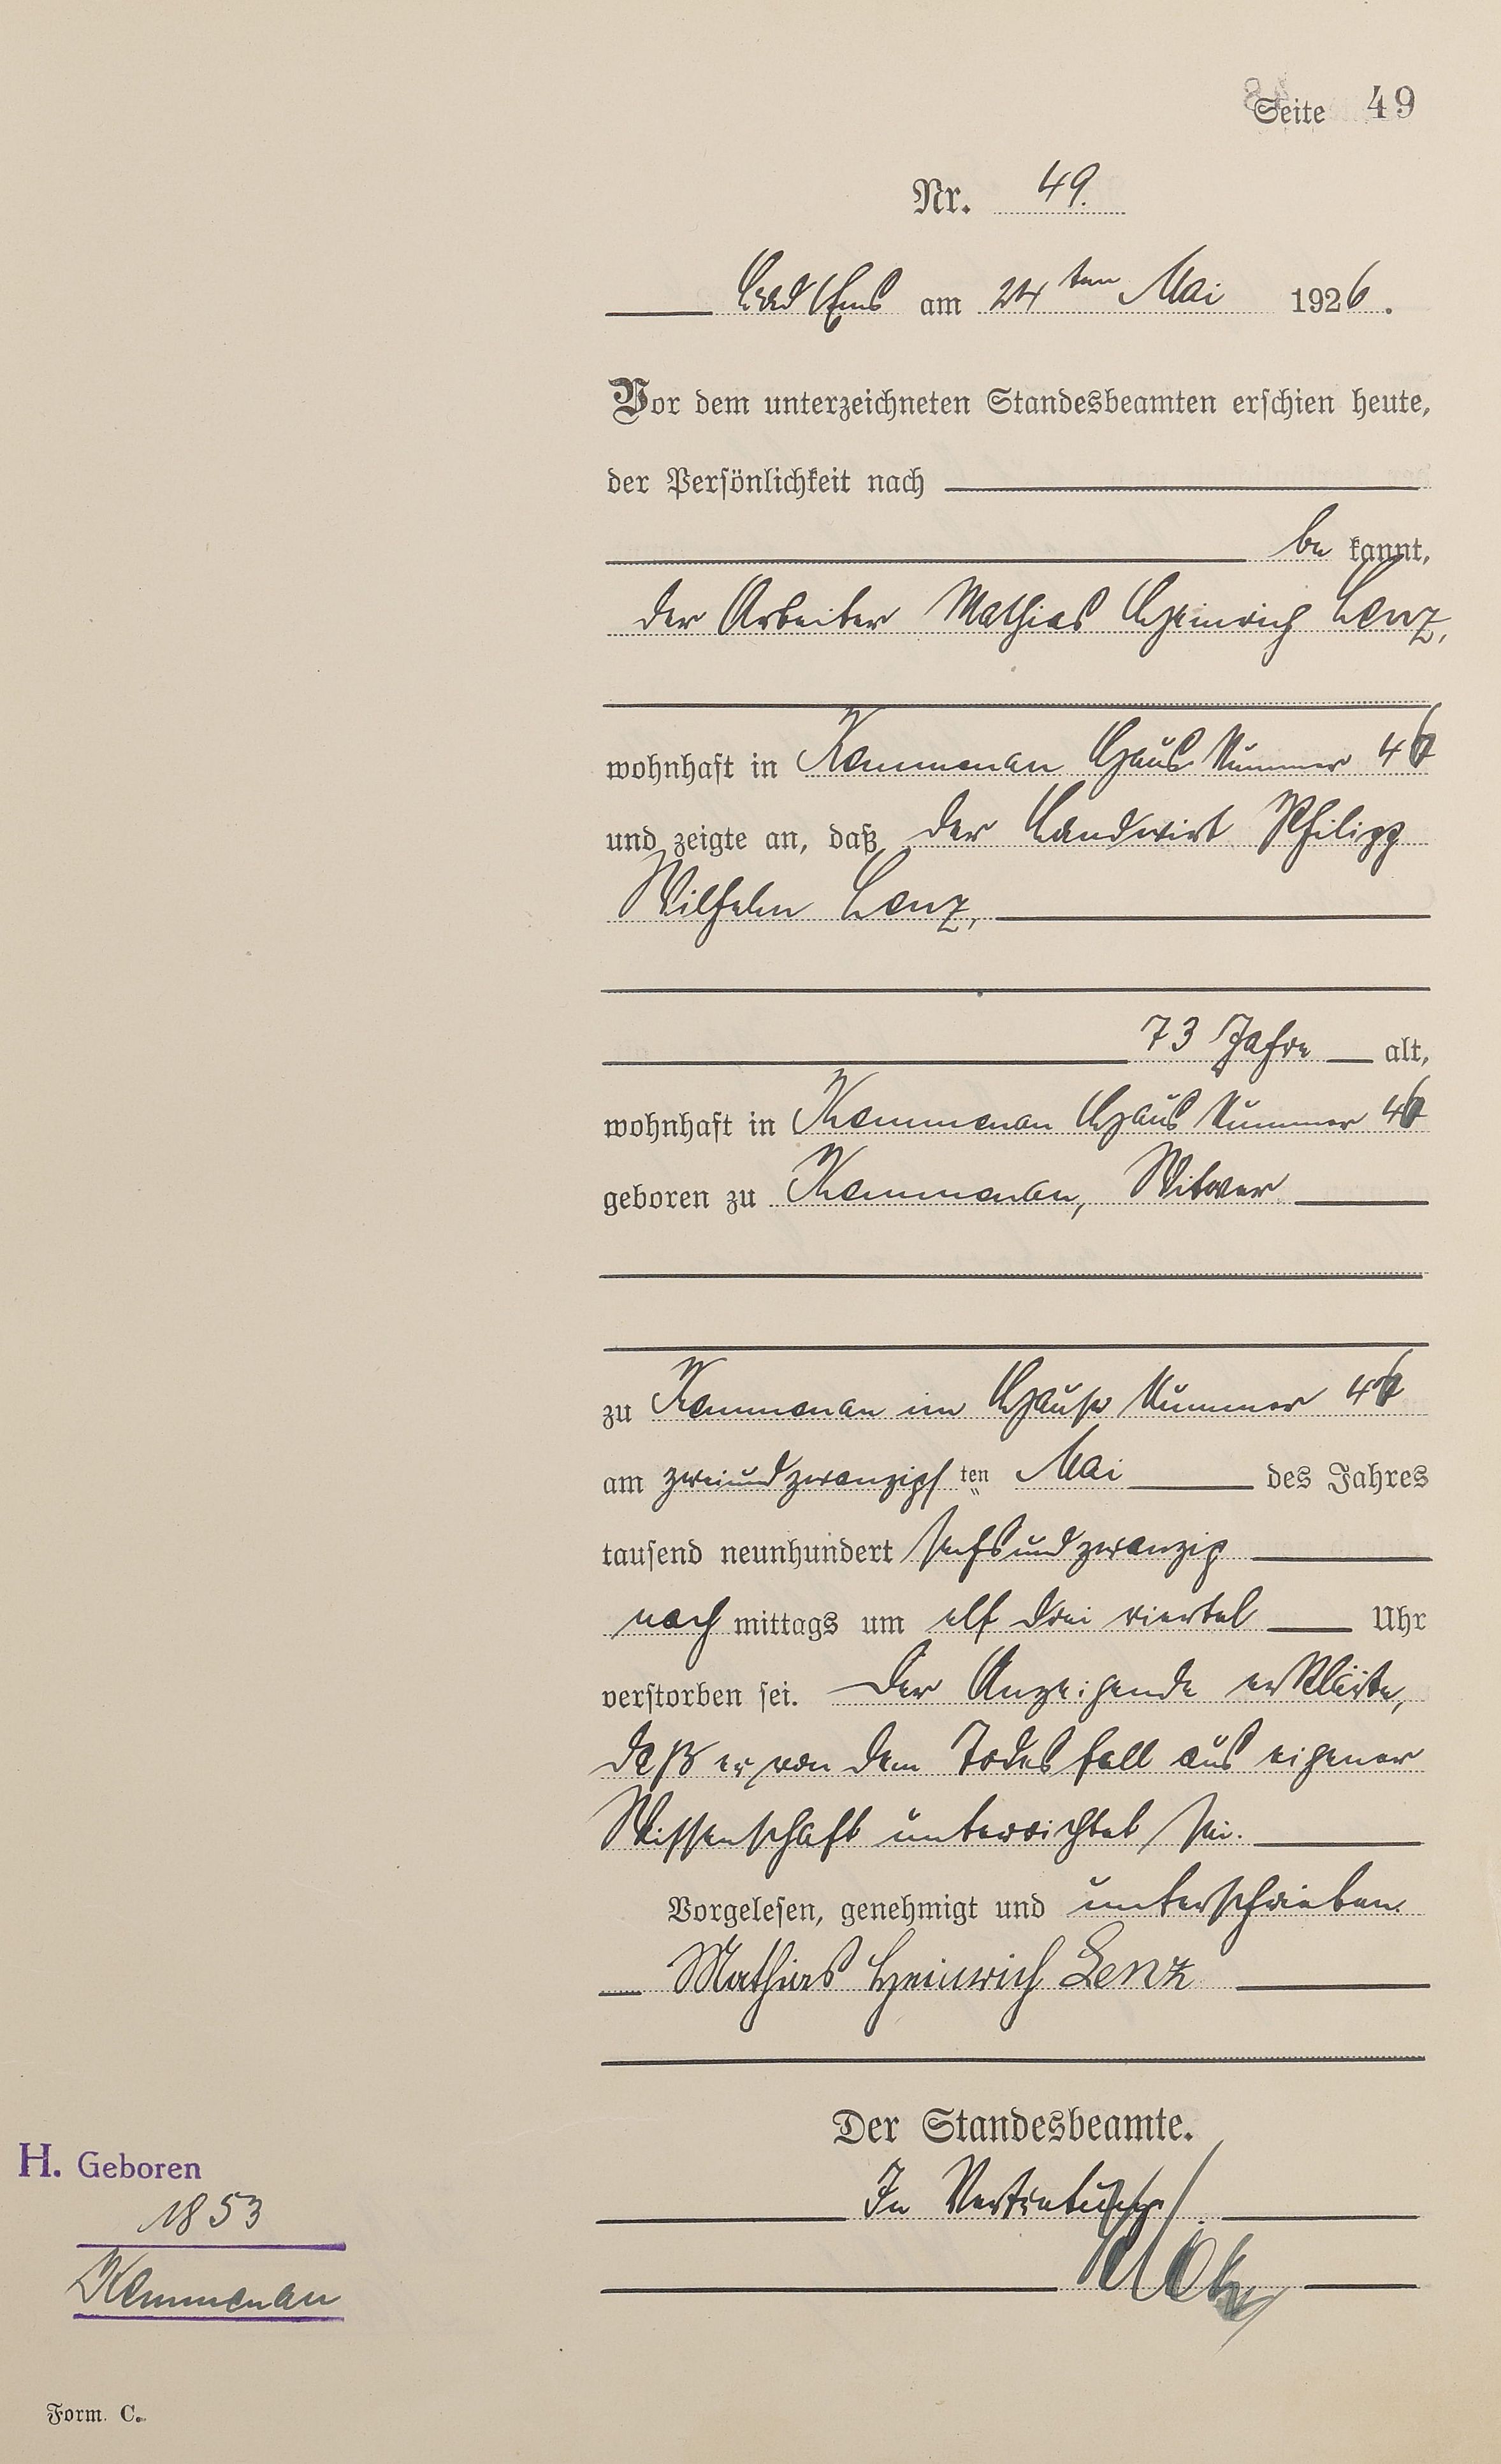 Seite 49
Nr. 49.
Bad Ems am 24ten Mai 1926.
Vor dem unterzeichneten Standesbeamten erschien heute,
der Persönlichkeit nach
be kannt,
der Arbeiter Mathias Heinrich Lenz,
wohnhaft in Kemmenau Haus Nummer 46
und zeigte an, daß der Landwirt Philipp
Wilhelm Lenz,
73 Jahre alt,
wohnhaft in Kemmenau Haus Nummer 46
geboren zu Kemmenau, Witwer
zu Kemmenau im Hause Nummer 46
am zweiundzwanzigsten Mai des Jahres
tausend neunhundert sechsundzwanzig
nach mittags um elf drei viertel Uhr
verstorben sei. Der Anzeigende erklärte,
daß er von dem Todesfall aus eigener
Wissenschaft unterrichtet sei.
Vorgelesen, genehmigt und unterschrieben.
Mathias Heinrich Lenz
Der Standesbeamte.
In Vertretung
H. Geboren
1853
Kemmenau
Form. C.